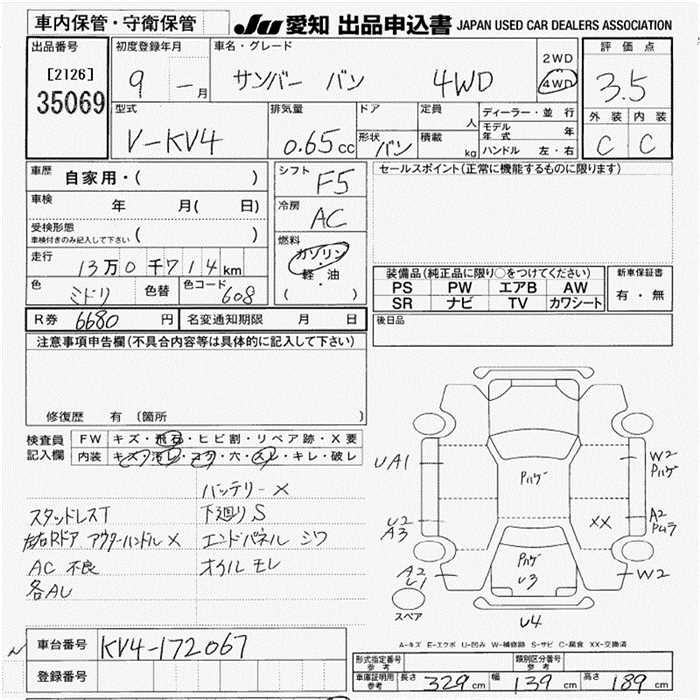 車内保管・守衛保管 JU 愛知 出品申込書 JAPAN USED CAR DEALERS ASSOCIATION
出品番号 初度登録年月 車名・グレード 評価点
[2126] 9 - 月 サンバー バン 4WD 2WD 4WD 3.5
35069
型式 排気量 ドア 定員 人 ディーラー・並行 外装 内装
V-KV4 0.65cc 形状 バン 積載 kg モデル年式 年 C C
ハンドル 左・右
車歴 自家用・( ) シフト F5 セールスポイント(正常に機能するものに限ります)
車検 年 月( 日) 冷房 AC
受検形態 車検付きのみ記入して下さい ( ) 燃料 ガソリン・軽油 ( )
走行 13万0千714km
色 ミドリ 色替 色コード 608
装備品(純正品に限り○をつけてください) 新車保証書
PS PW エアB AW 有・無
SR ナビ TV カワシート
R券 6680円 名変通知期限 月 日 後日品
注意事項申告欄(不具合内容等は具体的に記入して下さい)
修復歴 有 〔箇所 〕
検査員記入欄 FW キズ・飛石・ヒビ割・リペア跡・X要
内装 キズ・汚レ・コゲ・穴・スレ・キレ・破レ
バッテリー×
スタッドレスT 下廻りS
左右Rドア アウターハンドル× エンドパネル シワ
AC 不良 オイル モレ
各AU
UA1 W2
パハゲ パハゲ
U2 A3 XX A2
A2 U1 パハゲ U3 W2
スペア U4
A-キズ E-エクボ U-凹み W-補修跡 S-サビ C-腐食 XX-交換済
車台番号 KV4-172067
登録番号
形式指定番号 参考 類別区分番号 参考
車庫証明用 参考 長さ 329cm 幅 139cm 高さ 189cm